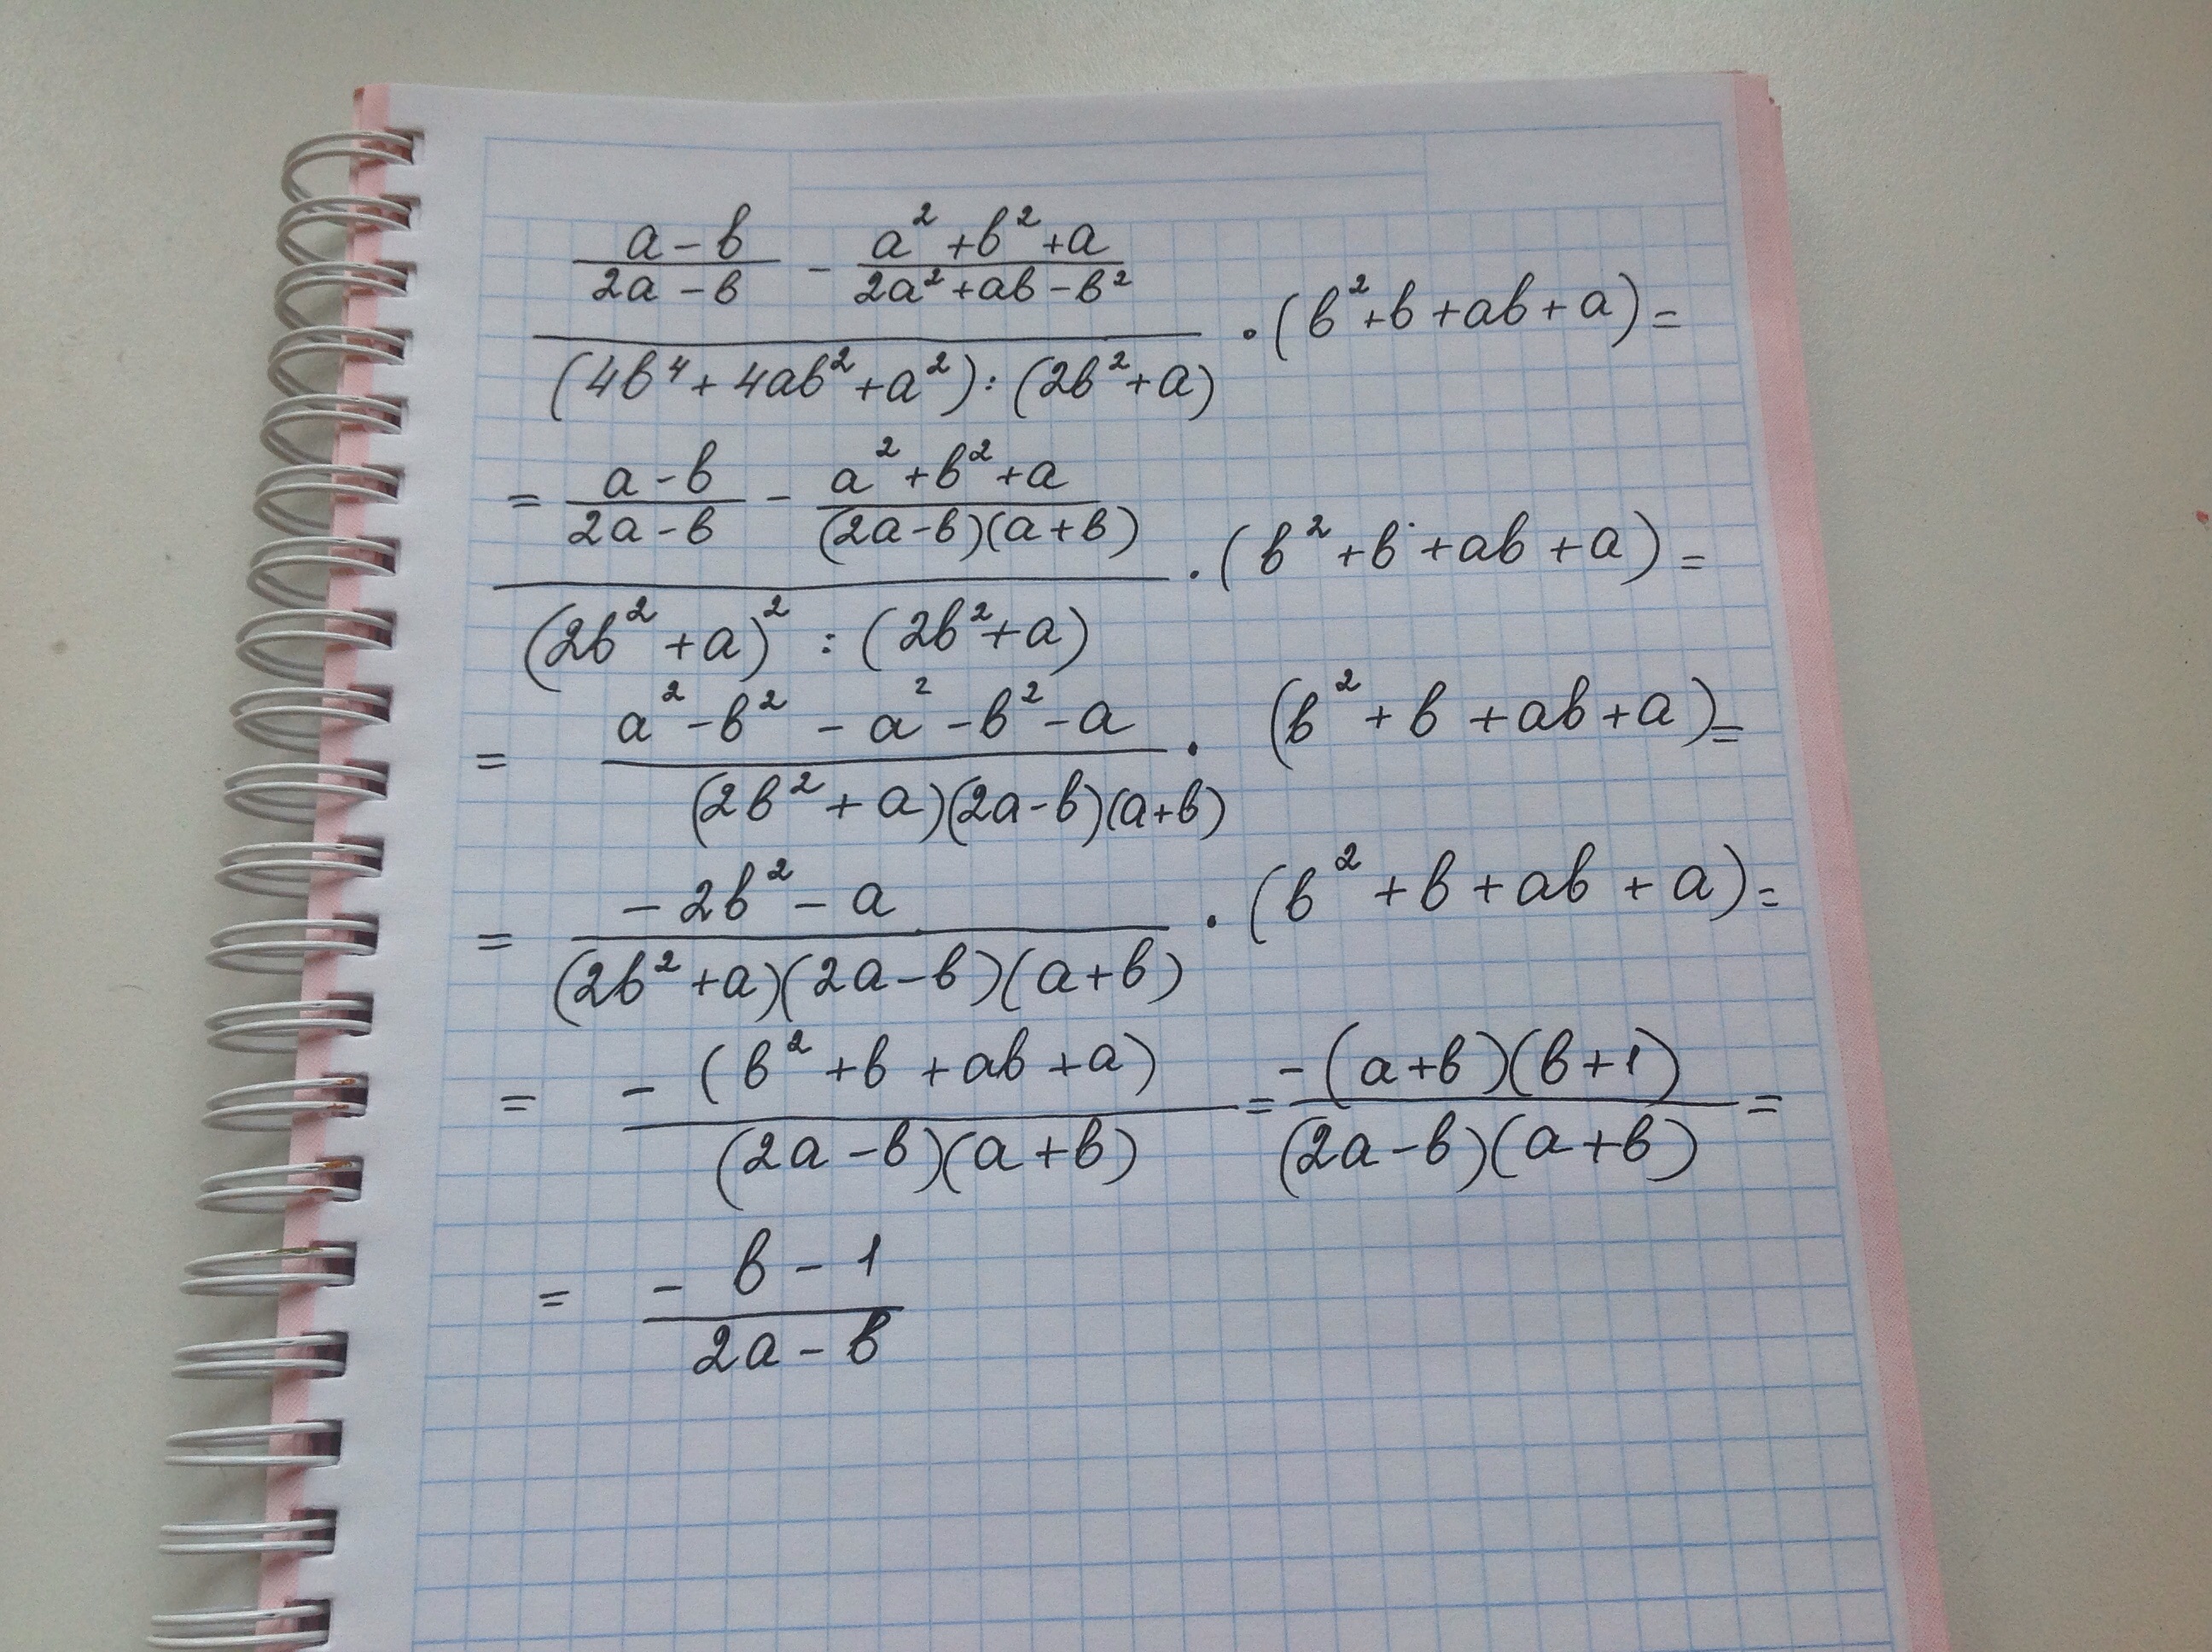 \frac{\frac{a-b}{2a-b} - \frac{a^2+b^2+a}{2a^2+ab-b^2}}{(4b^4+4ab^2+a^2):(2b^2+a)} \cdot (b^2+b+ab+a) =
= \frac{\frac{a-b}{2a-b} - \frac{a^2+b^2+a}{(2a-b)(a+b)}}{(2b^2+a)^2:(2b^2+a)} \cdot (b^2+b+ab+a) =
= \frac{a^2-b^2-a^2-b^2-a}{(2b^2+a)(2a-b)(a+b)} \cdot (b^2+b+ab+a) =
= \frac{-2b^2-a}{(2b^2+a)(2a-b)(a+b)} \cdot (b^2+b+ab+a) =
= \frac{-(b^2+b+ab+a)}{(2a-b)(a+b)} = \frac{-(a+b)(b+1)}{(2a-b)(a+b)} =
= \frac{-b-1}{2a-b}